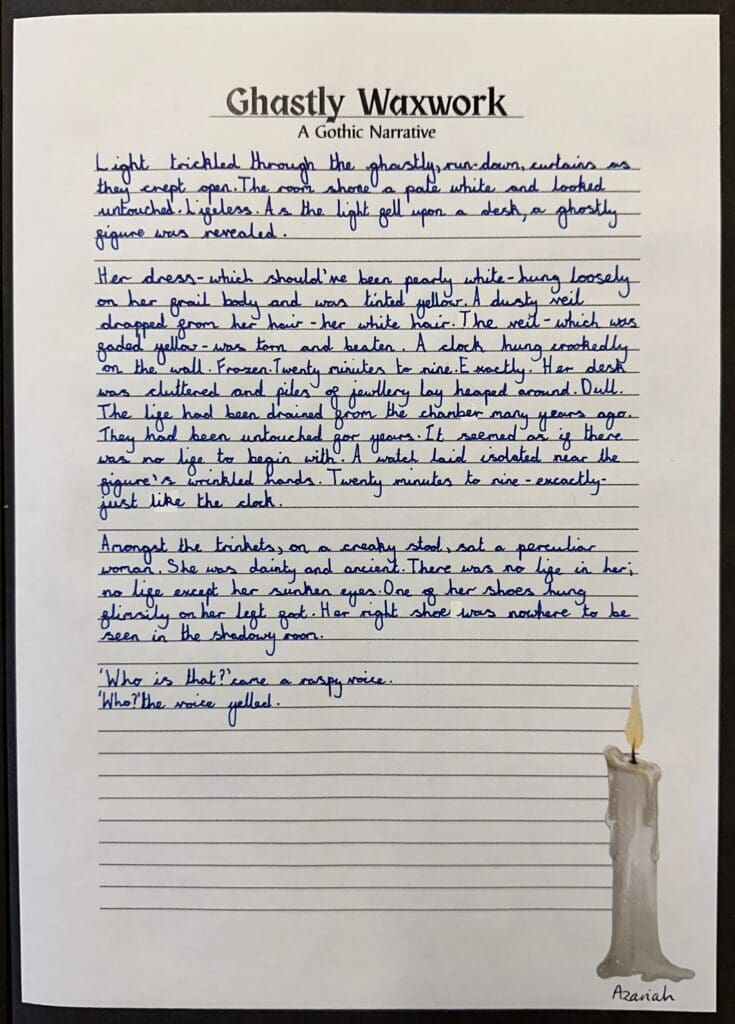 Ghastly Waxwork
A Gothic Narrative
Light trickled through the ghastly, run-down, curtains as
they crept open. The room shone a pale white and looked
untouched. Lifeless. As the light fell upon a desk, a ghostly
figure was revealed.
Her dress - which should've been pearly white - hung loosely
on her frail body and was tinted yellow. A dusty veil
drapped from her hair - her white hair. The veil - which was
faded yellow - was torn and beaten. A clock hung crookedly
on the wall. Frozen. Twenty minutes to nine. Exactly. Her desk
was cluttered and piles of jewllery lay heaped around. Dull.
The life had been drained from the chamber many years ago.
They had been untouched for years. It seemed as if there
was no life to begin with. A watch laid isolated near the
figure's wrinkled hands. Twenty minutes to nine - excactly -
just like the clock.
Amongst the trinkets, on a creaky stool, sat a perculiar
woman. She was dainty and ancient. There was no life in her;
no life except her sunken eyes. One of her shoes hung
flimsily on her left foot. Her right shoe was nowhere to be
seen in the shadowy room.
'Who is that?' came a raspy voice.
'Who?' the voice yelled.
Azariah